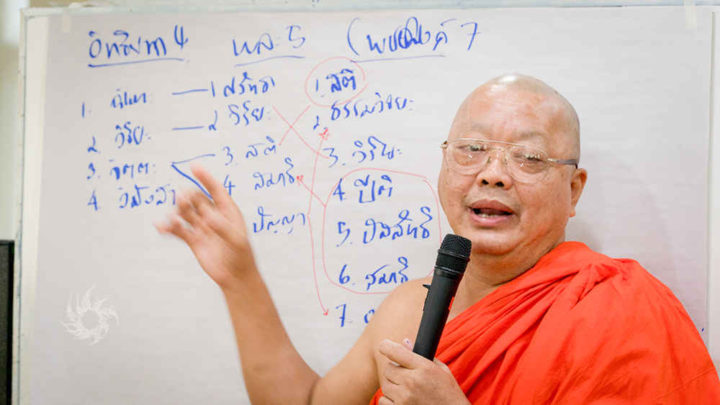 อิทธิบาท 4
1. ฉันทะ
2. วิริยะ
3. จิตตะ
4 วิมังสา
พละ 5
1 สรัทธา
2 วิริยะ
3. สติ
4 สมาธิ
ปัญญา
โพชฌงค์ 7
1. สติ
2 ธรรมวิจยะ
3. วิริยะ
4 ปีติ
5. ปัสสัทธิ
6. สมาธิ
7.